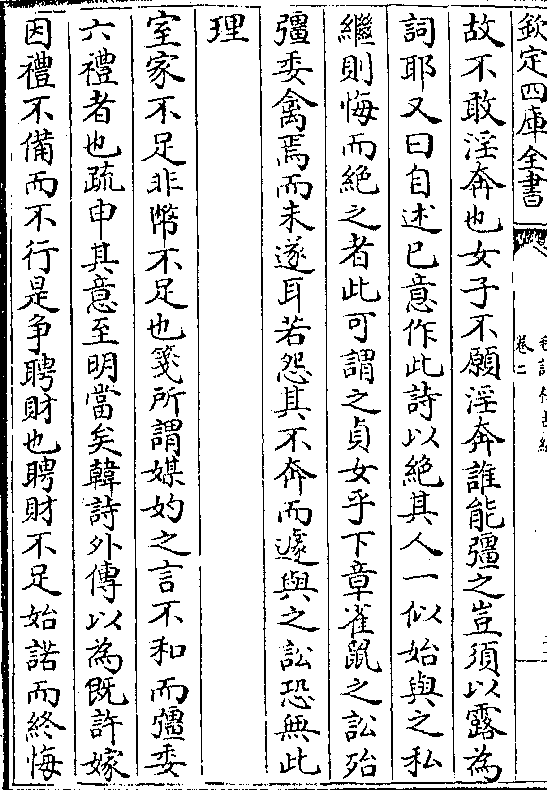 欽定四庫全書
卷二
故不敢淫奔也女子不願淫奔誰能彊之豈須以露為
詞耶又曰自述已意作此詩以絶其人一似始與之私
繼則悔而絶之者此可謂之貞女乎下章雀鼠之訟殆
彊委禽焉而未遂耳若怨其不奔而遽與之訟恐無此
理
室家不足非幣不足也箋所謂媒妁之言不和而彊委
六禮者也疏申其意至明當矣韓詩外傳以為既許嫁
因禮不備而不行是争聘財也聘財不足始諾而終悔